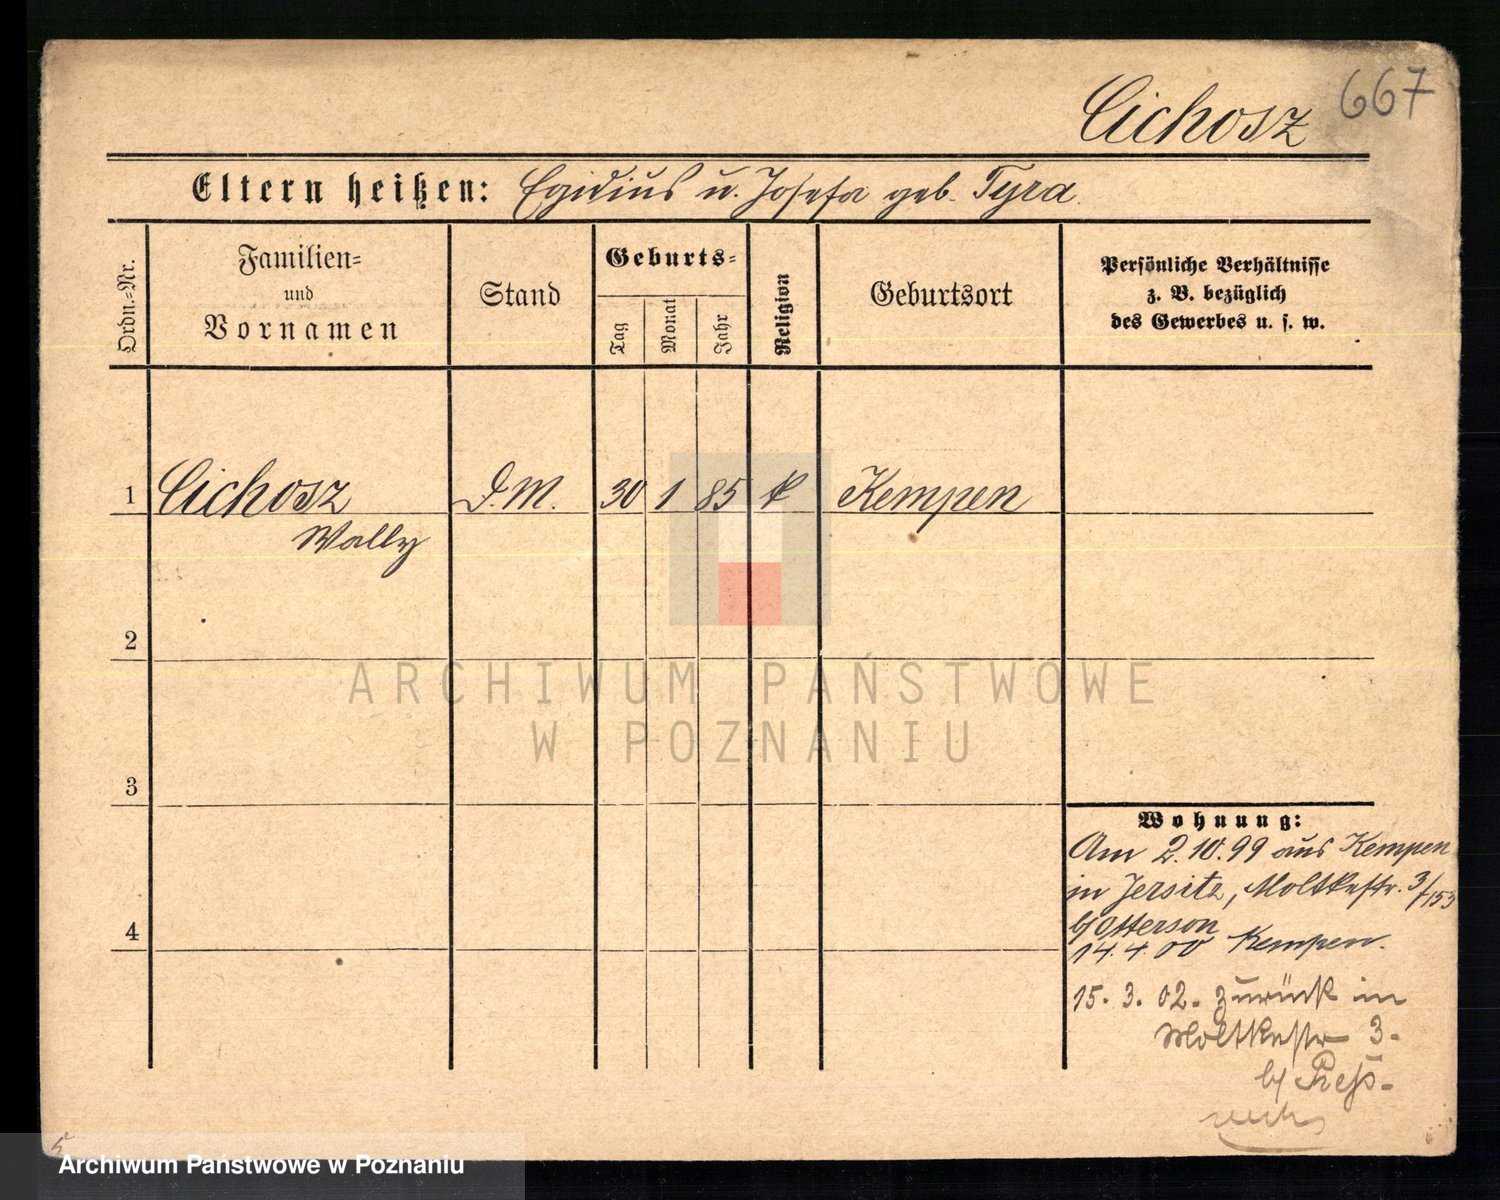 Cichosz 667
Eltern heißen: Egidius u. Josefa geb. Tyra.
Ordn.=Nr.
Familien=
und
Vornamen
Stand
Geburts=
Tag
Monat
Jahr
Religion
Geburtsort
Persönliche Verhältnisse
z. B. bezüglich
des Gewerbes u. s. w.
1 Cichosz D.M. 30 1 85 k Kempen
Wally
2
ARCHIWUM PAŃSTWOWE
W POZNANIU
3
Wohnung:
Am 2.10.99 aus Kempen
in Jersitz, Moltkestr. 3/153
b/ Otterson
4
14.4.00 Kempen.
15. 3. 02. zurück in
Moltkestr 3.
b/
5
Archiwum Państwowe w Poznaniu